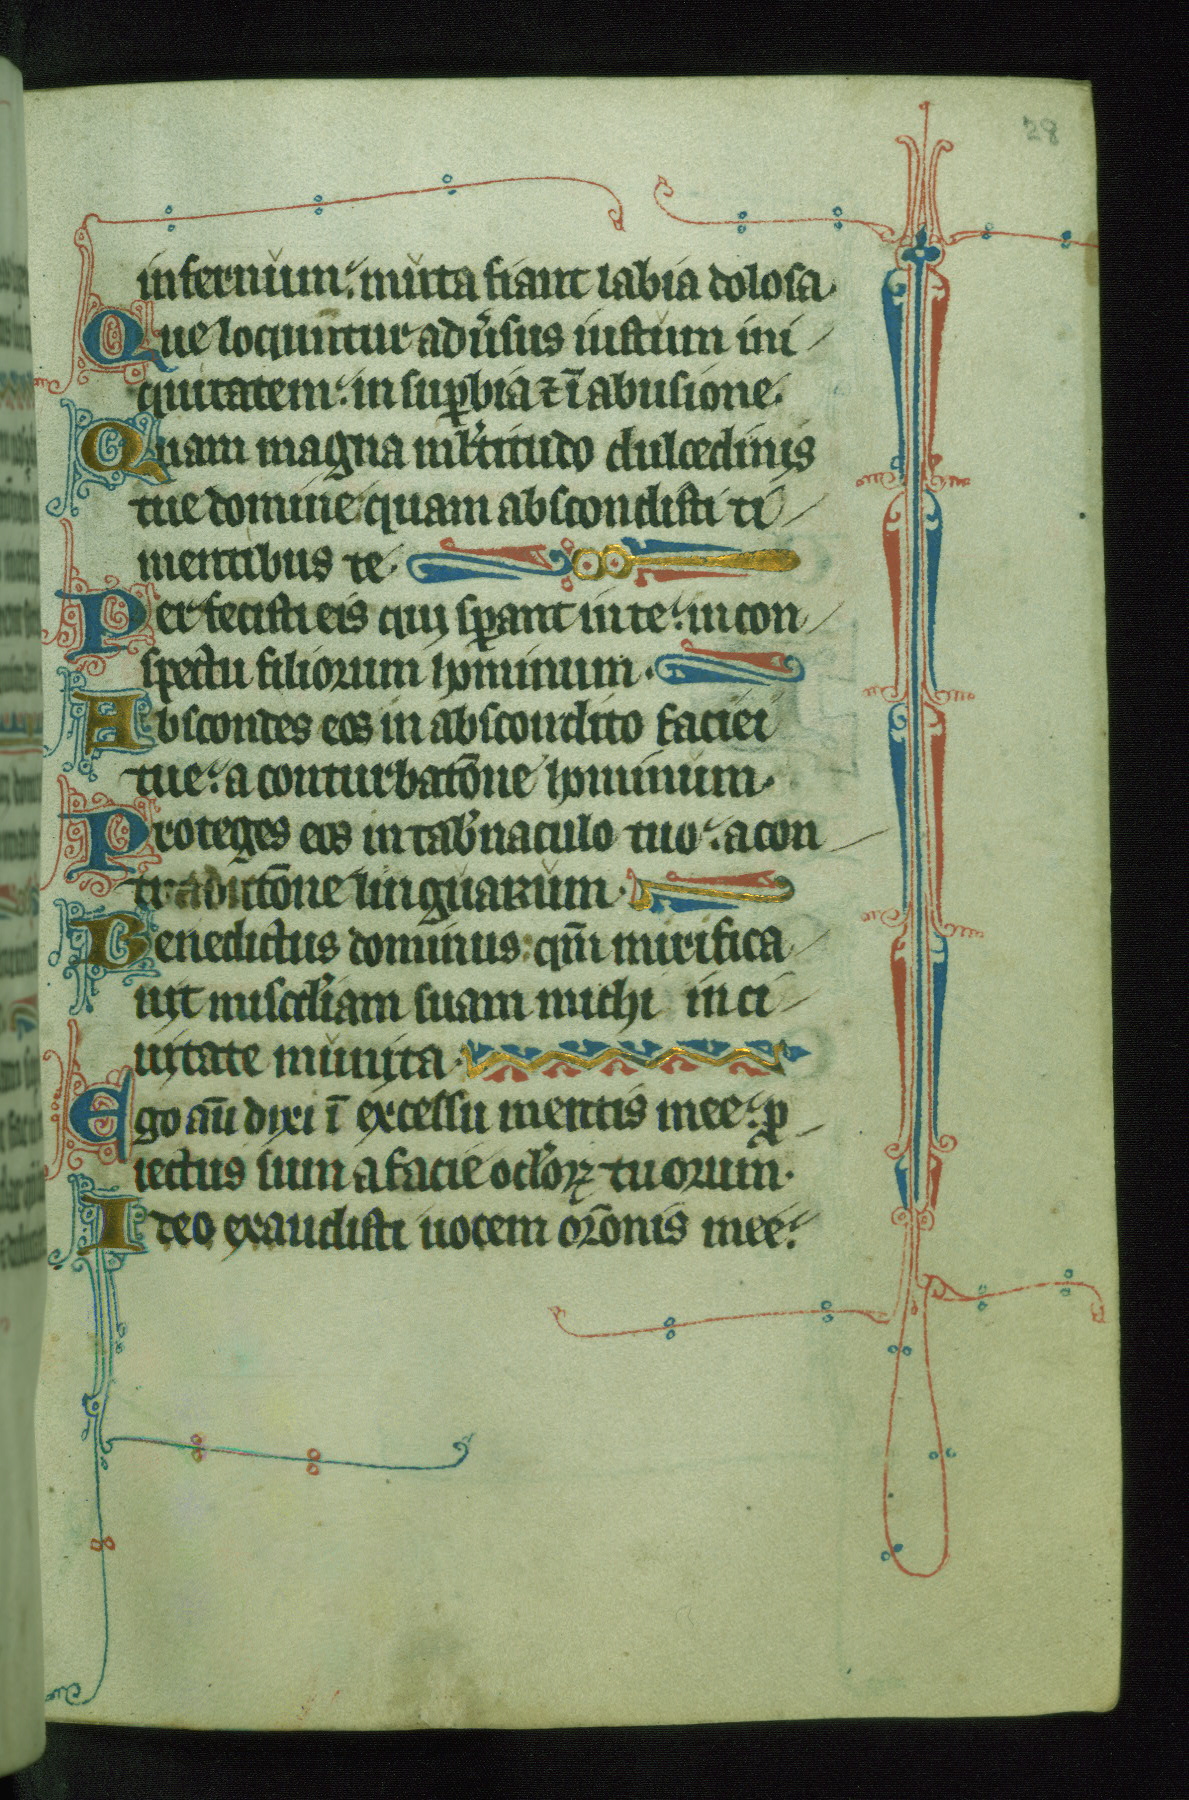 28
infernum. muta fiant labia dolosa.
Que loquuntur adu̾sus iustum ini
quitatem. in sup̱bia ⁊ ī abusione.
Quam magna ml̾titudo dulcedinis
tue domine quam abscondisti ti
mentibus te.
Perfecisti eis qui sp̱ant in te. in con
spectu filiorum hominum.
Abscondes eos in abscondito faciei
tue. a conturbatōne hominum.
Proteges eos in tab̾naculo tuo. a con
tradictōne linguarum.
Benedictus dominus. qm̄ mirifica
uit misc̾diam suam michi in ci
uitate munita.
Ego aū dixi ī excessu mentis mee. p̱
iectus sum a facie oc̾loꝝ tuorum.
Ideo exaudisti uocem or̄onis mee.